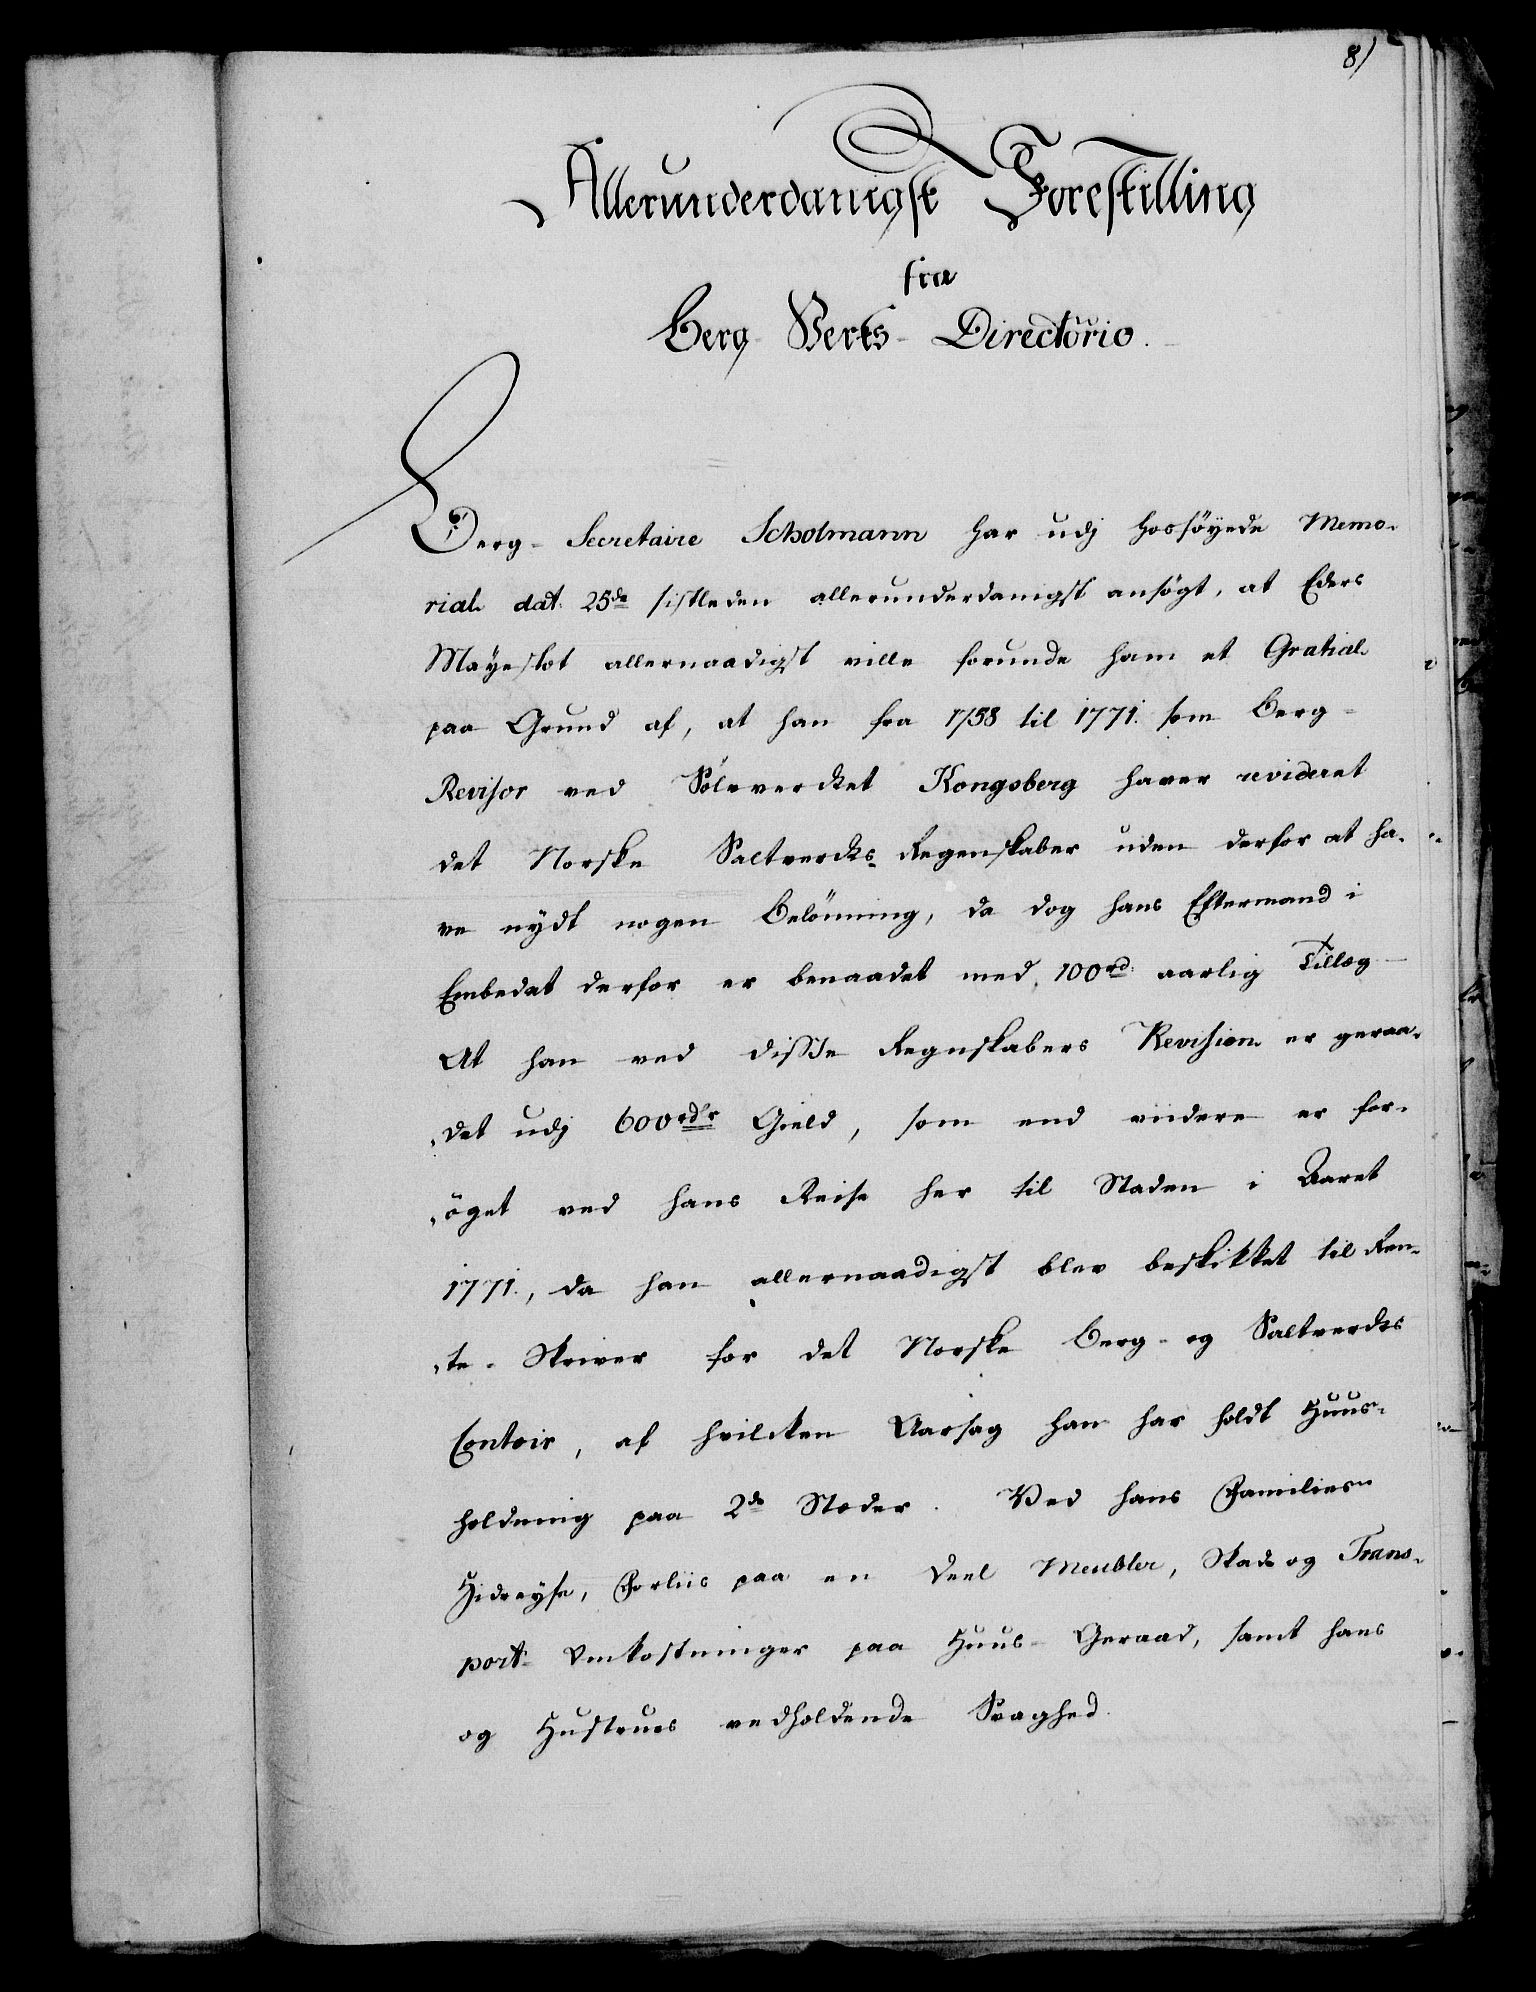 8)
Allerunderdanigst Forestilling
fra
Berg-Verks-Directorio.
Berg-Secretaire Scholmann har udj hosföyede Memo-
rial dat. 25de sistleden allerunderdanigst ansögt, at Eders
Mayestet allernaadigst ville forunde ham et Gratial
paa Grund af, at han fra 1758 til 1771. som Berg-
Revisor ved Sölvverket Kongsberg haver revideret
det Norske Saltverks-Regenskaber uden derfor at ha-
ve nydt nogen Belönning, da dog hans Eftermand i
Embedet derfor er benaadet med 100rd. aarlig Tillæg
At han ved disse Regnskabers Revision er geraa-
det udj 600rdr Gield, som end viidere er for-
öget ved hans Reise her til Staden i Aaret
1771., da han allernaadigst blev beskikket til Ren-
te-Skriver for det Norske Berg- og Saltverks
Contoir, af hvilcken Aarsag han har holdt Huus-
holdning paa 2de Steder. Ved hans Families
Hidreyse, Forliis paa en Deel Meubler, Skade og Trans-
port-Omkostninger paa Huus-Geraad, samt hans
og Hustrues vedholdende Svaghed.